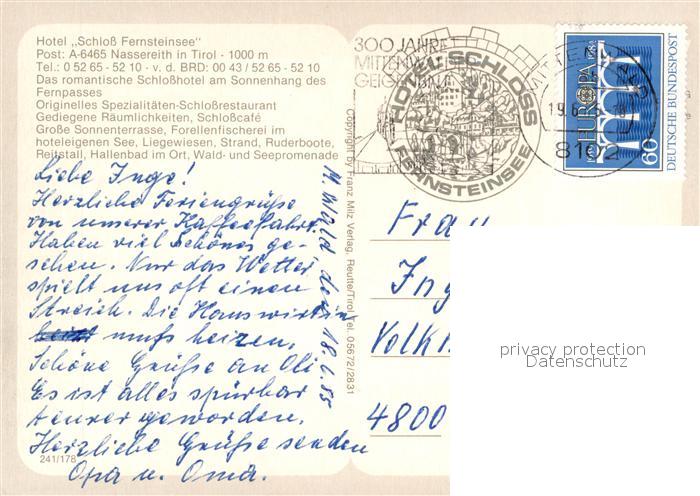 Hotel „Schloß Fernsteinsee"
Post: A-6465 Nassereith in Tirol - 1000 m
Tel.: 0 52 65 - 52 10 - v. d. BRD: 00 43 / 52 65 - 52 10
Das romantische Schloßhotel am Sonnenhang des
Fernpasses
Originelles Spezialitäten-Schloßrestaurant
Gediegene Räumlichkeiten, Schloßcafé
Große Sonnenterrasse, Forellenfischerei im
hoteleigenen See, Liegewiesen, Strand, Ruderboote,
Reitstall, Hallenbad im Ort, Wald- und Seepromenade
Liebe Inge!
Herzliche Feriengrüße
von unserer Kaffeefahrt.
Haben viel Schönes ge-
sehen. Nur das Wetter
spielt uns oft einen
Streich. Die Hauswirtin
muß heizen.
Schöne Grüße an Oli
Es ist alles spürbar
teurer geworden.
Herzliche Grüße senden
Opa u. Oma.
241/178
M.wald den 18.6.85
Copyright by Franz Milz Verlag, Reutte/Tirol, Tel. 05672/2831
300 JAHRE
MITTENWALD
GEIGENBAU
HOTEL SCHLOSS
FERNSTEINSEE
MITTENWALD
8102
EUROPA
60
DEUTSCHE BUNDESPOST
Frau
Volk
4800
privacy protection
Datenschutz